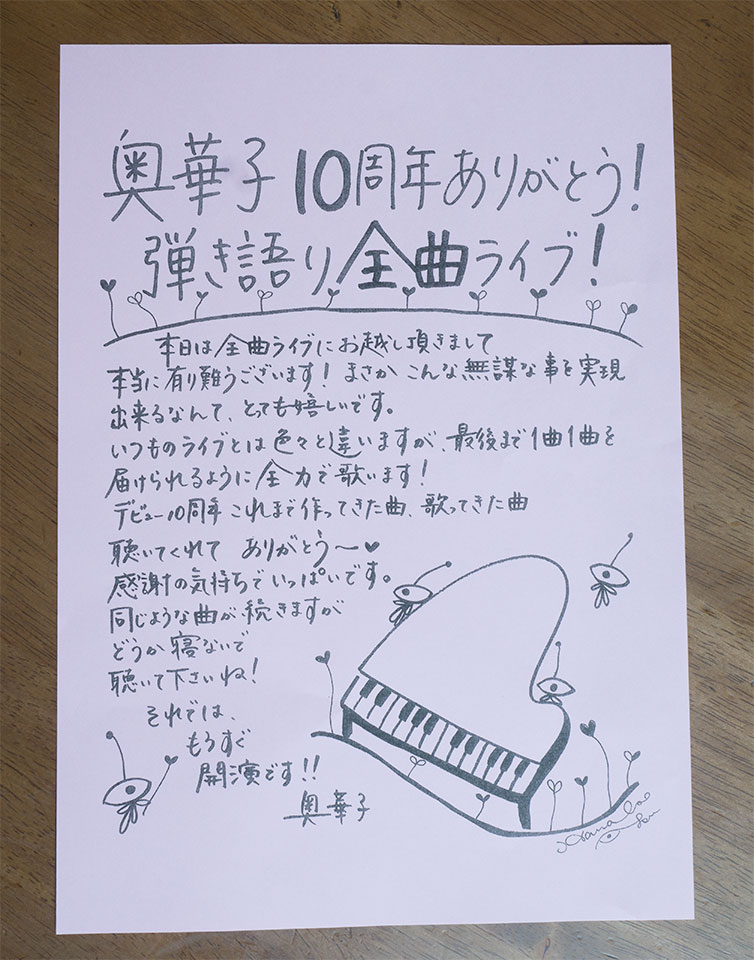 奥華子10周年ありがとう!
弾き語り全曲ライブ!
本日は全曲ライブにお越し頂きまして
本当に有り難うございます! まさか こんな無謀な事を実現
出来るなんて、とても嬉しいです。
いつものライブとは色々と違いますが、最後まで1曲1曲を
届けられるように全力で歌います!
デビュー10周年 これまで作ってきた曲、歌ってきた曲
聴いてくれて ありがとう〜♥
感謝の気持ちでいっぱいです。
同じような曲が続きますが
どうか寝ないで
聴いて下さいね!
それでは、
もうすぐ
開演です!!
奥華子